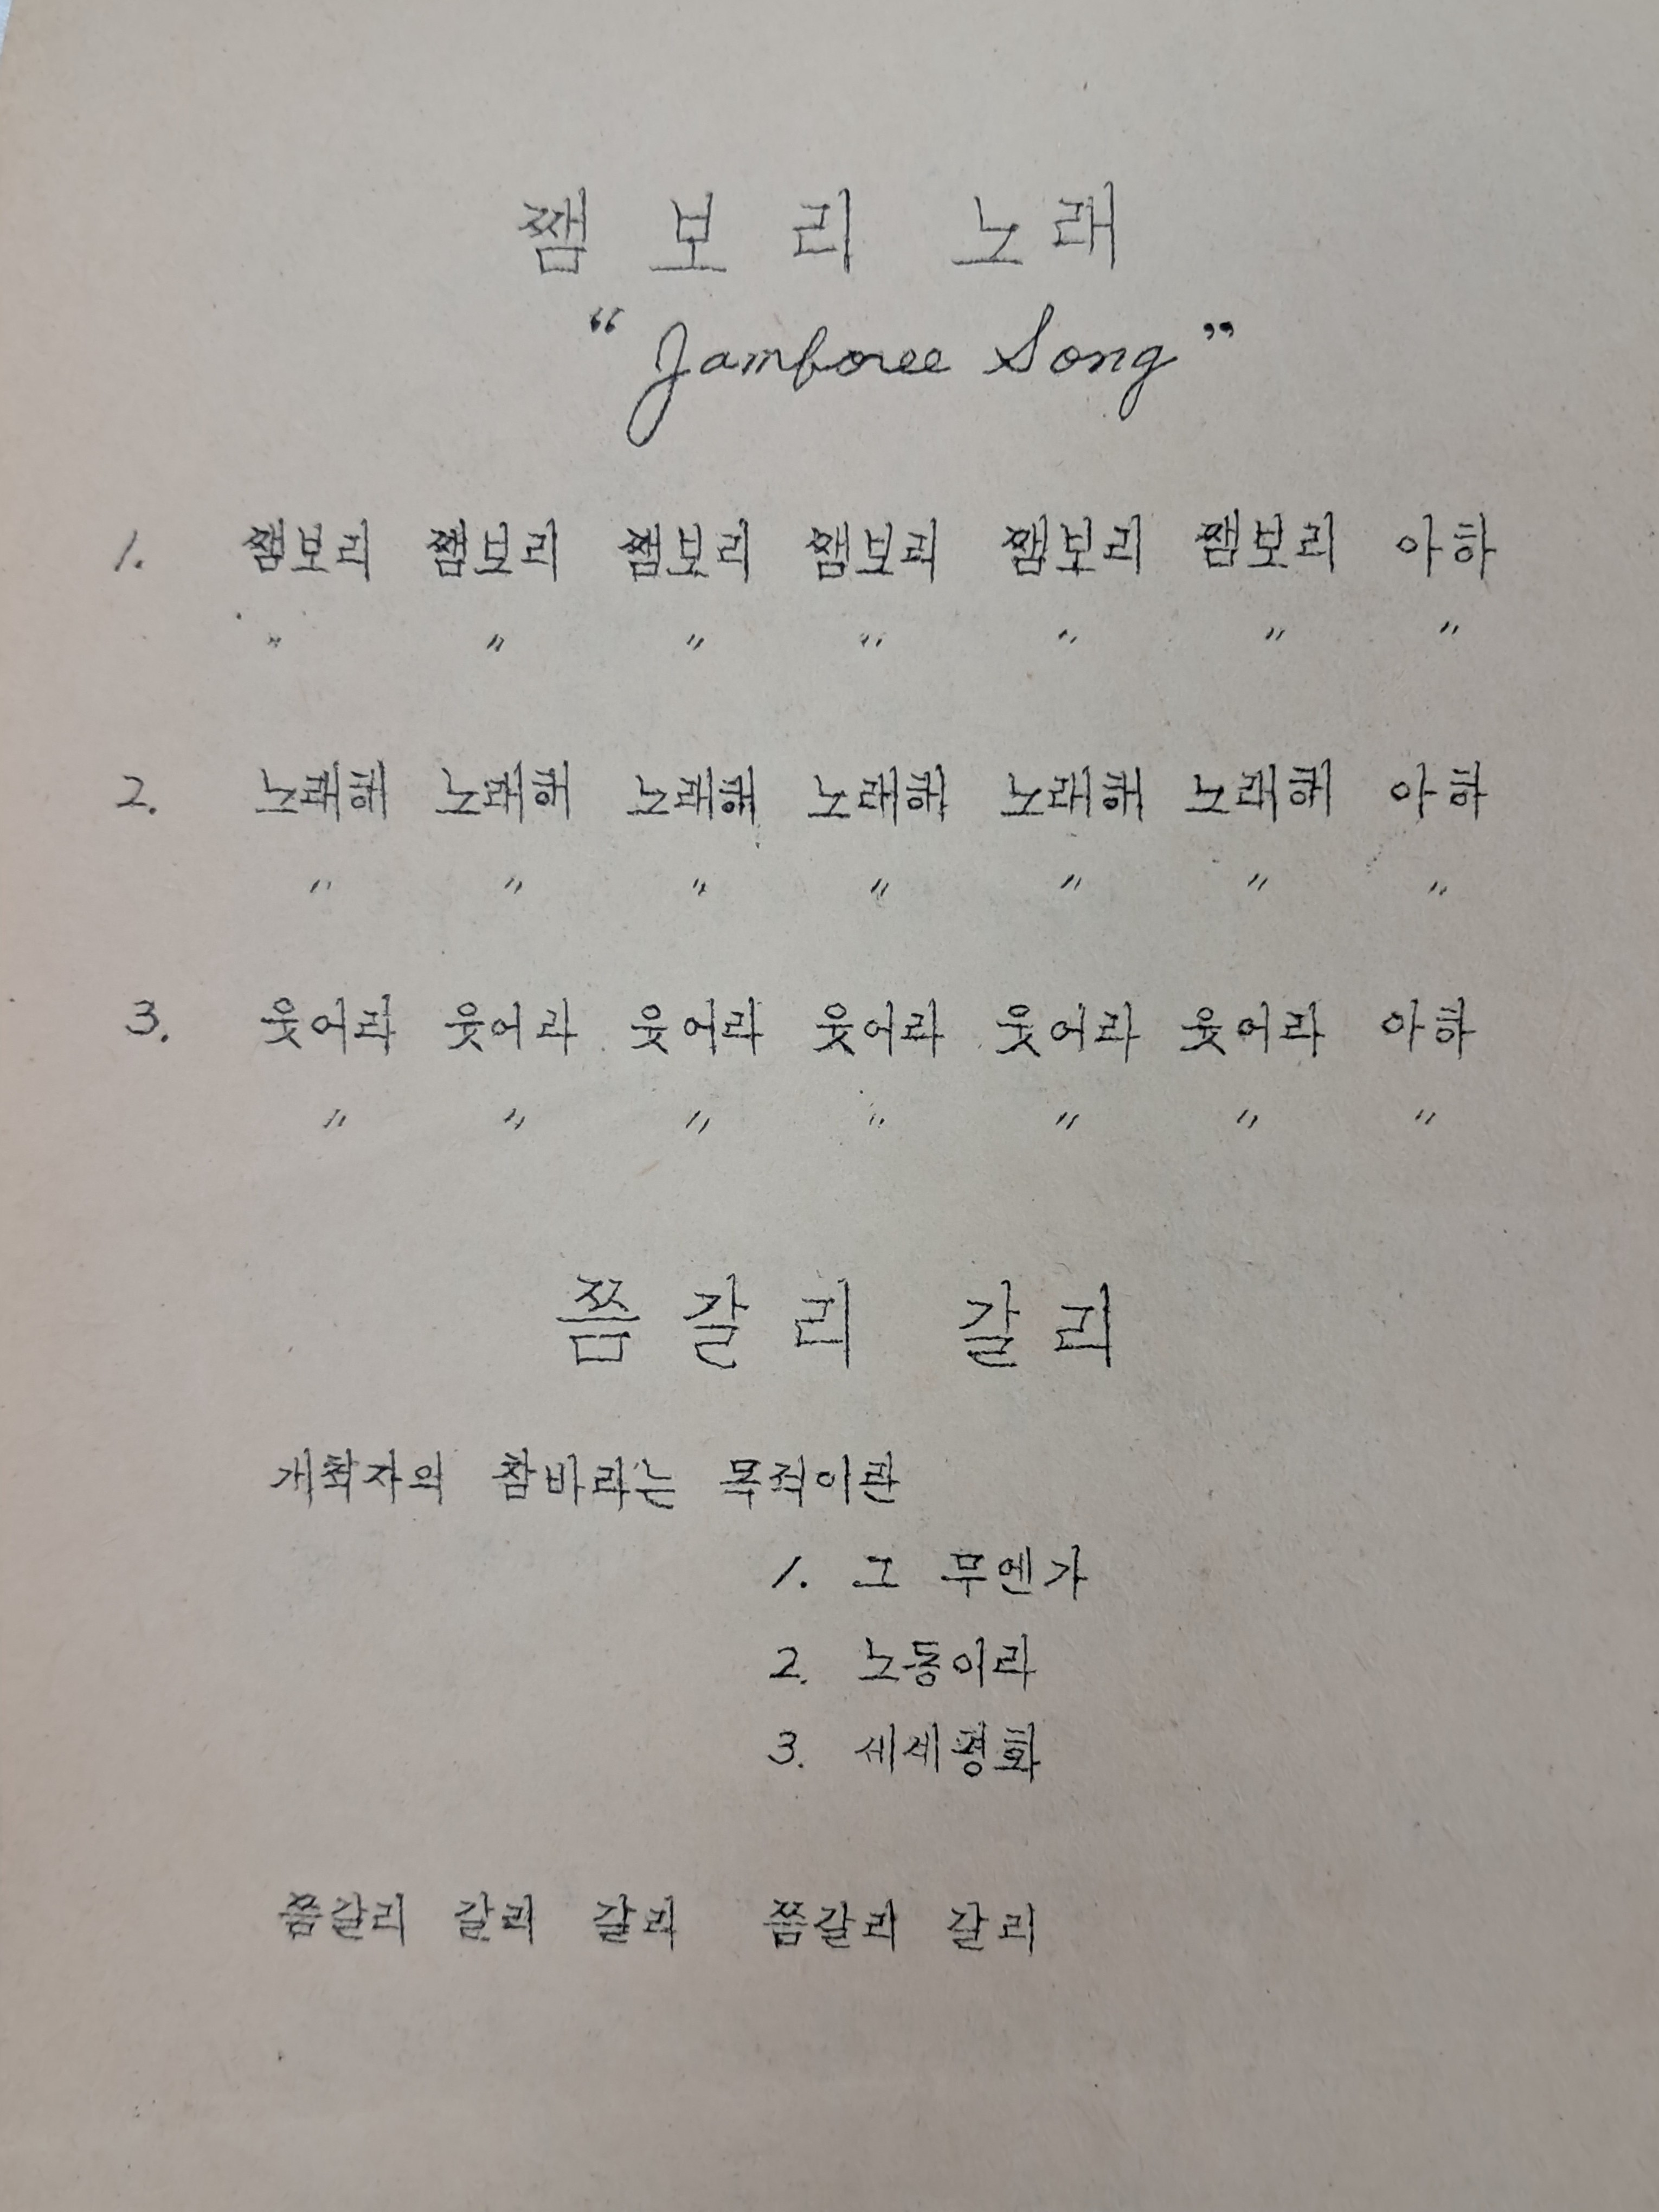 쨈보리 노래
“Jamboree Song”
1. 쨈보리 쨈보리 쨈보리 쨈보리 쨈보리 쨈보리 아하
〃 〃 〃 〃 〃 〃 〃
2. 노래해 노래해 노래해 노래해 노래해 노래해 아하
〃 〃 〃 〃 〃 〃 〃
3. 웃어라 웃어라 웃어라 웃어라 웃어라 웃어라 아하
〃 〃 〃 〃 〃 〃 〃
쯤갈리 갈리
개척자의 참바라는 목적이란
1. 그 무엔가
2. 노동이라
3. 세계평화
쯤갈리 갈리 갈리 쯤갈리 갈리